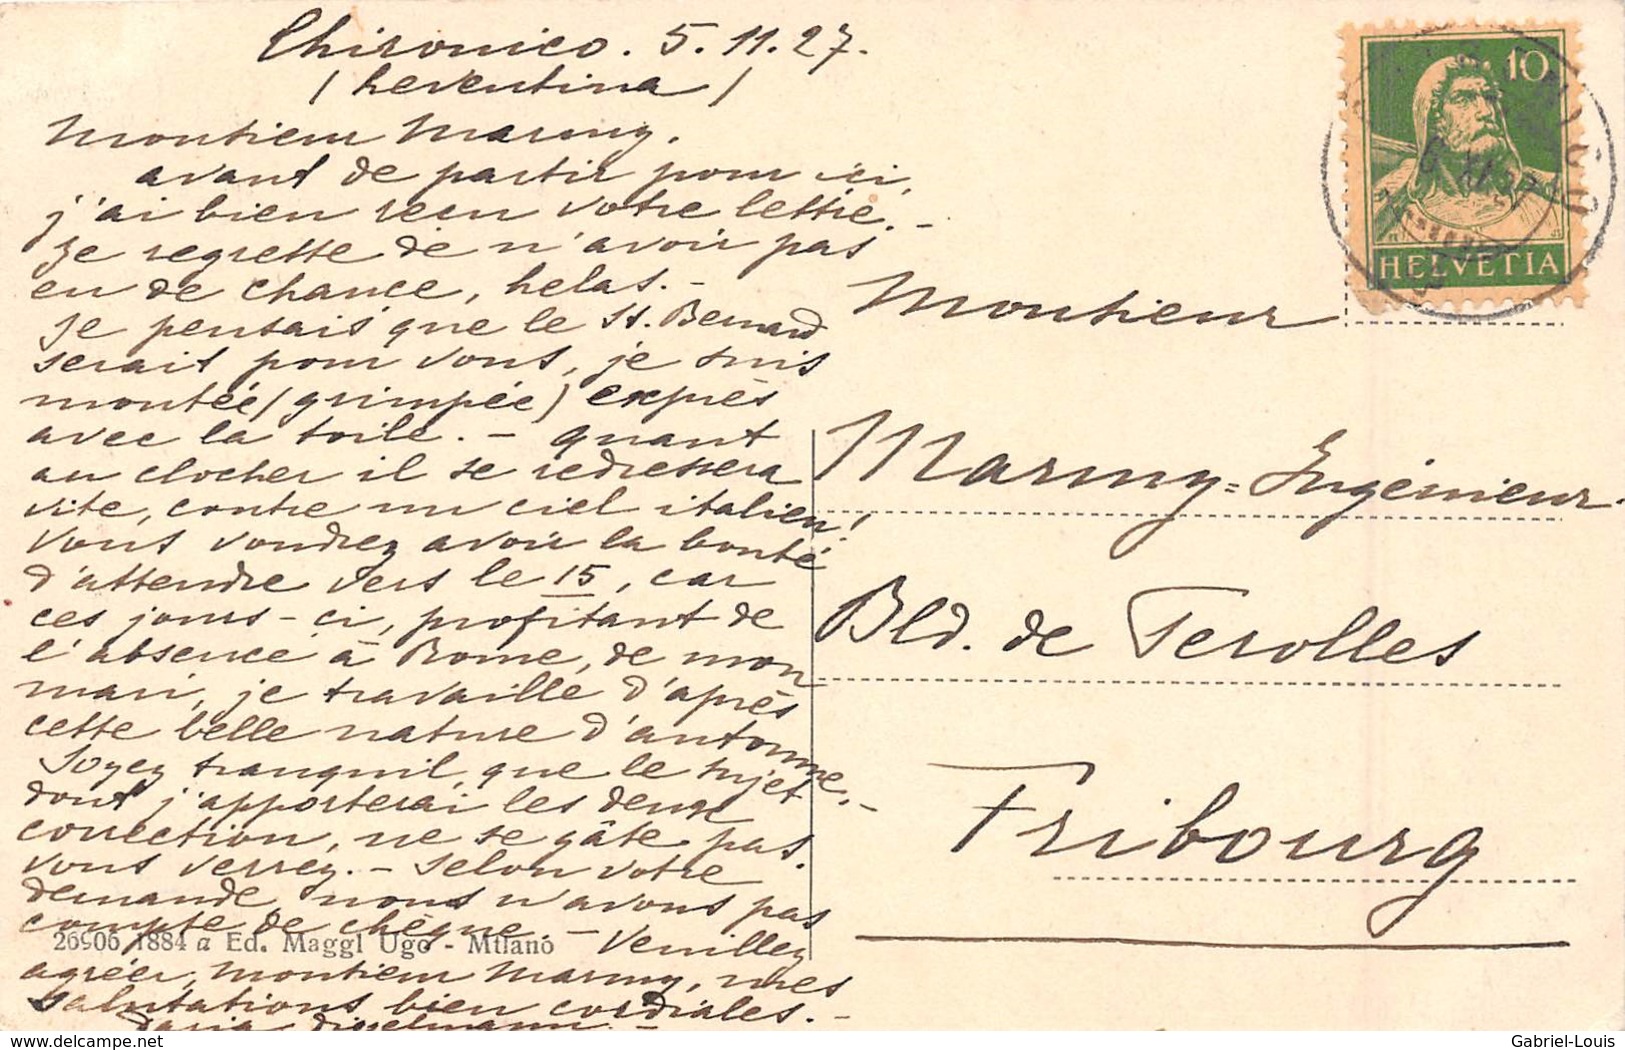 Chironico. 5.11.27.
(Leventina)
Monsieur Marmy.
avant de partir pour ici,
j'ai bien reçu votre lettre. -
Je regrette de n'avoir pas
eu de chance, helas. -
Je pensais que le St. Bernard
serait pour vous, je suis
montée (grimpée) exprès
avec la toile. - quant
au clocher il se redressera
vite, contre un ciel italien!
Vous voudrez avoir la bonté
d'attendre vers le 15, car
ces jours-ci, profitant de
l'absence à Rome, de mon
mari, je travaille d'après
cette belle nature d'automne. -
Soyez tranquil, que le sujet
dont j'apporterai les deux
correction, ne se gâte pas.
vous verrez. - Selon votre
demande nous n'avons pas
compte de chèque. - Veuillez
agréer, monsieur Marmy, mes
salutations bien cordiales. -
26906 1884 a Ed. Maggi Ugo - Milano
10
HELVETIA
Monsieur
Marmy = Ingénieur.
Bld. de Perolles
Fribourg
delcampe.net
Gabriel-Louis